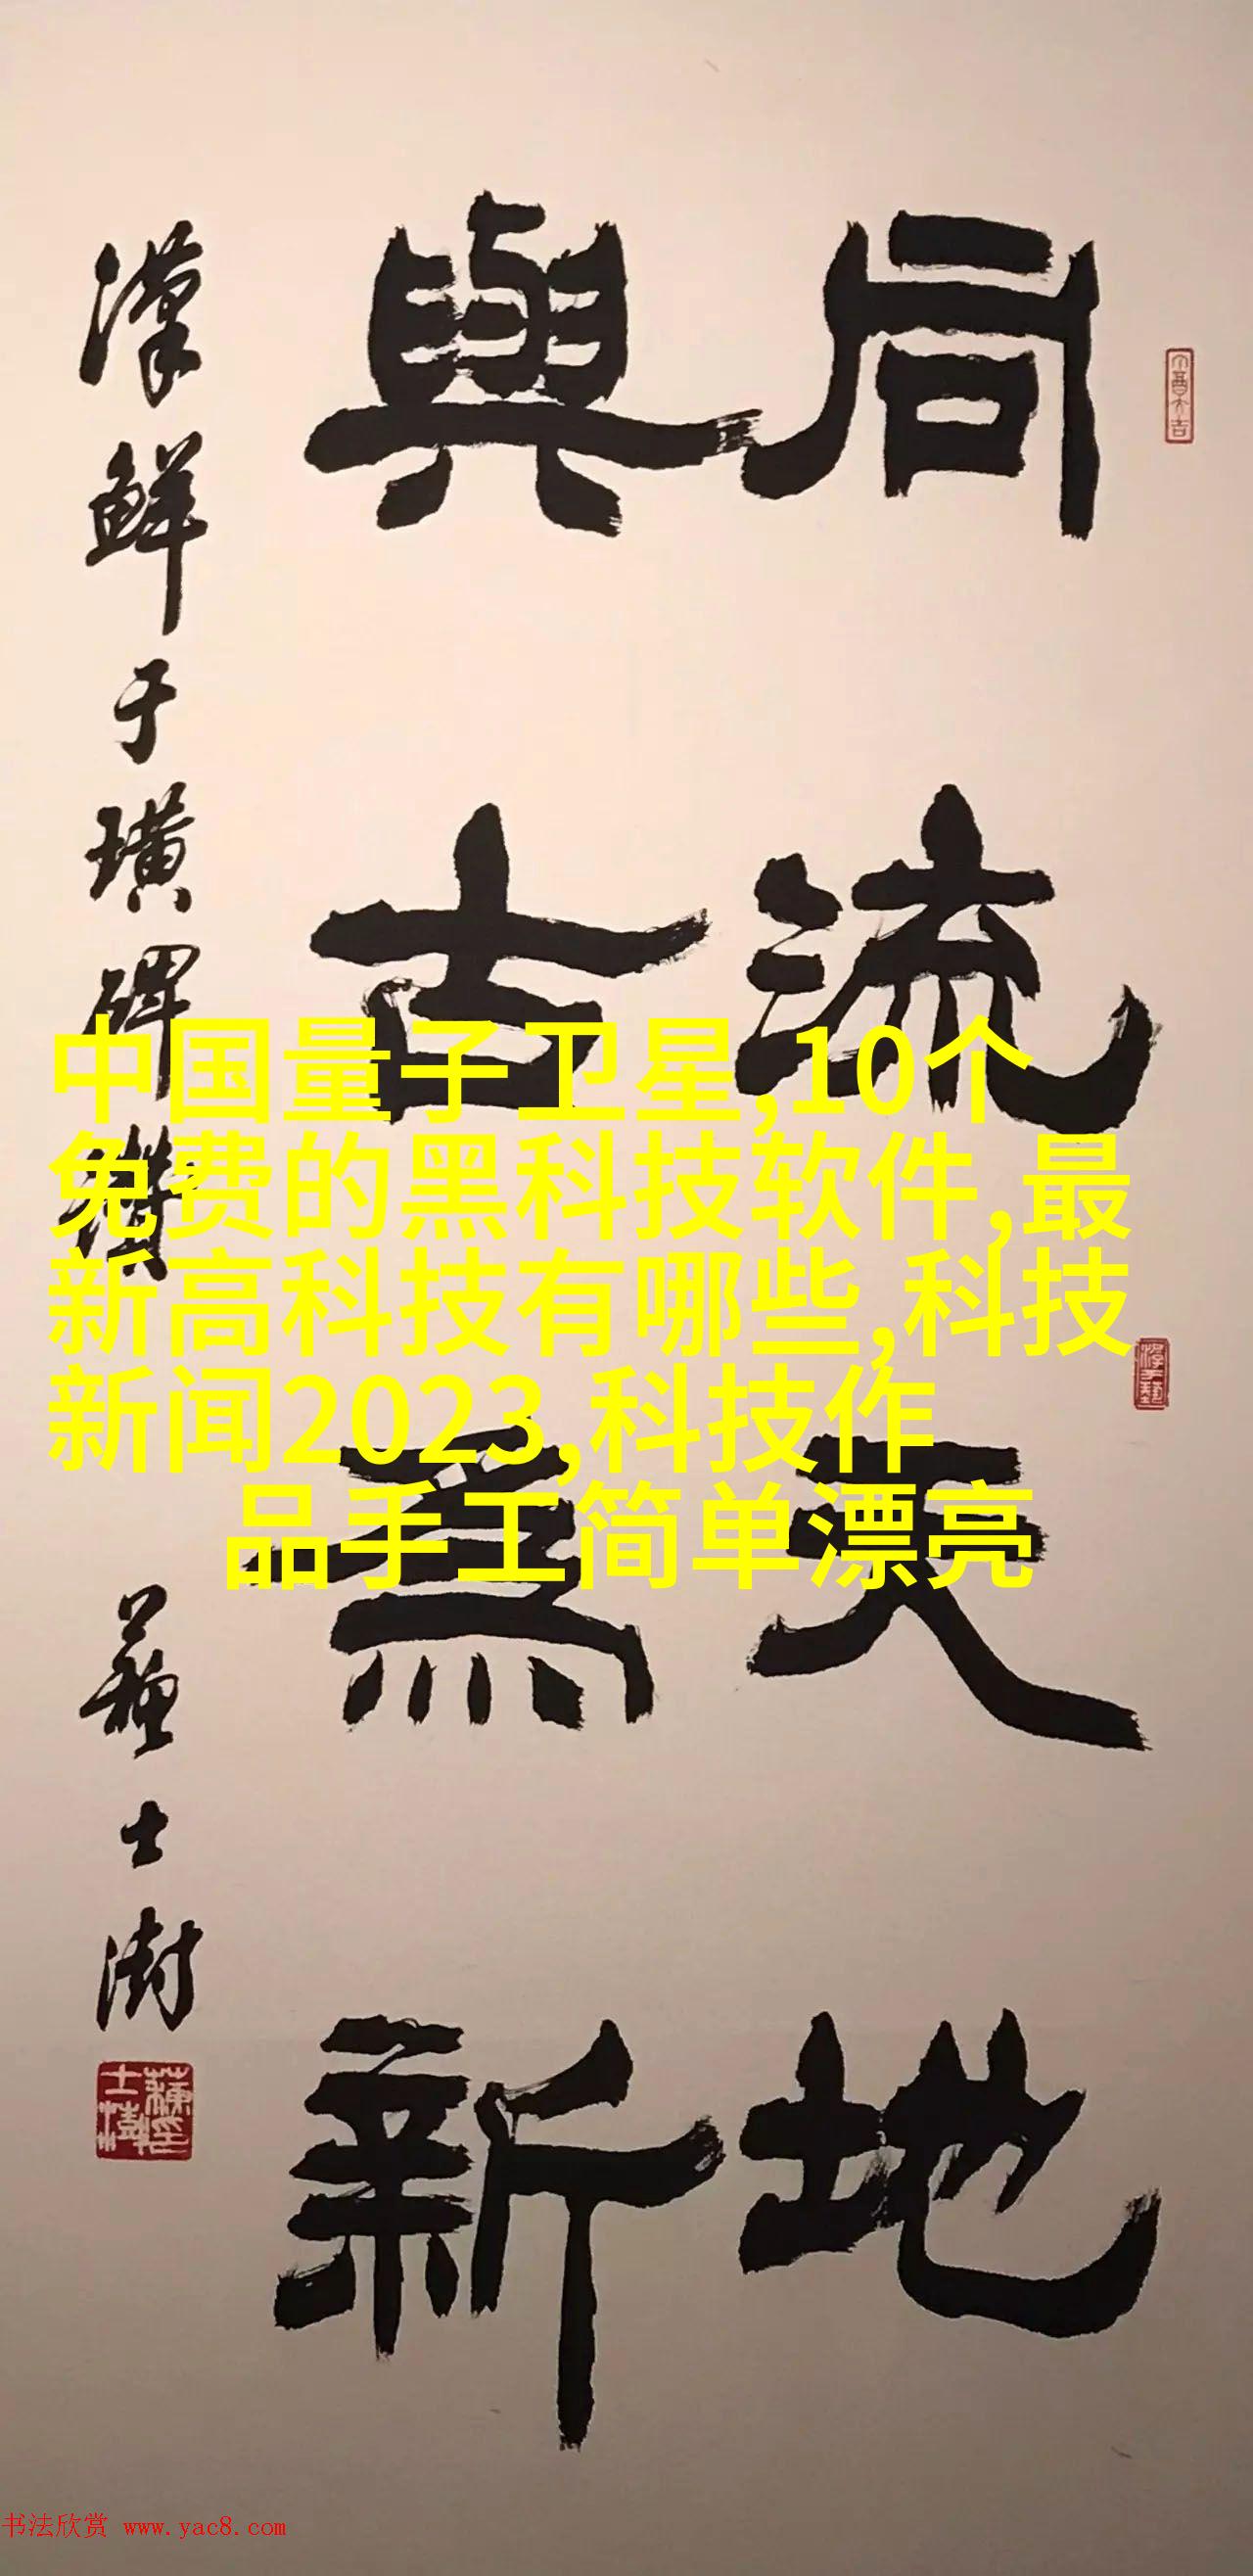 同流天地
與古為新
漢鮮于璜碑
蘇士澍
中国量子卫星,10个
免费的黑科技软件,最
新高科技有哪些,科技
新闻2023,科技作
品手工简单漂亮
书法欣赏 www.yac8.com